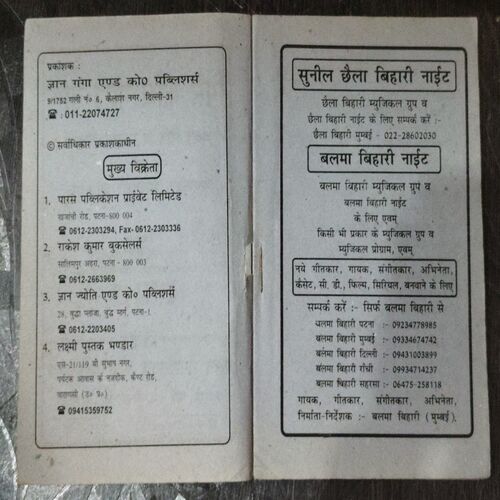 प्रकाशक :
ज्ञान गंगा एण्ड को० पब्लिशर्स
9/1752 गली नं० 6, कैलाश नगर, दिल्ली-31
☎ : 011-22074727
© सर्वाधिकार प्रकाशकाधीन
मुख्य विक्रेता
1. पारस पब्लिकेशन प्राईवेट लिमिटेड
खजांची रोड, पटना-800 004
☎ 0612-2303294, Fax- 0612-2303336
2. राकेश कुमार बुकसेलर्स
सालिमपुर अहरा, पटना - 800 003
☎ 0612-2663969
3. ज्ञान ज्योति एण्ड को० पब्लिशर्स
28, बुद्धा प्लाजा, बुद्ध मार्ग, पटना-1
☎ 0612-2203405
4. लक्ष्मी पुस्तक भण्डार
एस-21/119 बी सुभाष नगर,
पर्यटक आवास के नजदीक, कैण्ट रोड,
वाराणसी (उ० प्र०)
☎ 09415359752
सुनील छैला बिहारी नाईट
छैला बिहारी म्युजिकल ग्रुप व
छैला बिहारी नाईट के लिए सम्पर्क करें :-
छैला बिहारी मुम्बई - 022-28602030
बलमा बिहारी नाईट
बलमा बिहारी म्युजिकल ग्रुप व
बलमा बिहारी नाईट
के लिए एवम्
किसी भी प्रकार के म्युजिकल ग्रुप व
म्युजिकल प्रोग्राम, एवम्
नये गीतकार, गायक, संगीतकार, अभिनेता,
कैसेट, सी. डी., फिल्म, सिरियल, बनवाने के लिए
सम्पर्क करें :- सिर्फ बलमा बिहारी से
बलमा बिहारी पटना :- 09234778985
बलमा बिहारी मुम्बई :- 09334674742
बलमा बिहारी दिल्ली :- 09431003899
बलमा बिहारी राँची :- 09934714237
बलमा बिहारी सहरसा :- 06475-258118
गायक, गीतकार, संगीतकार, अभिनेता,
निर्माता-निर्देशक :- बलमा बिहारी (मुम्बई).